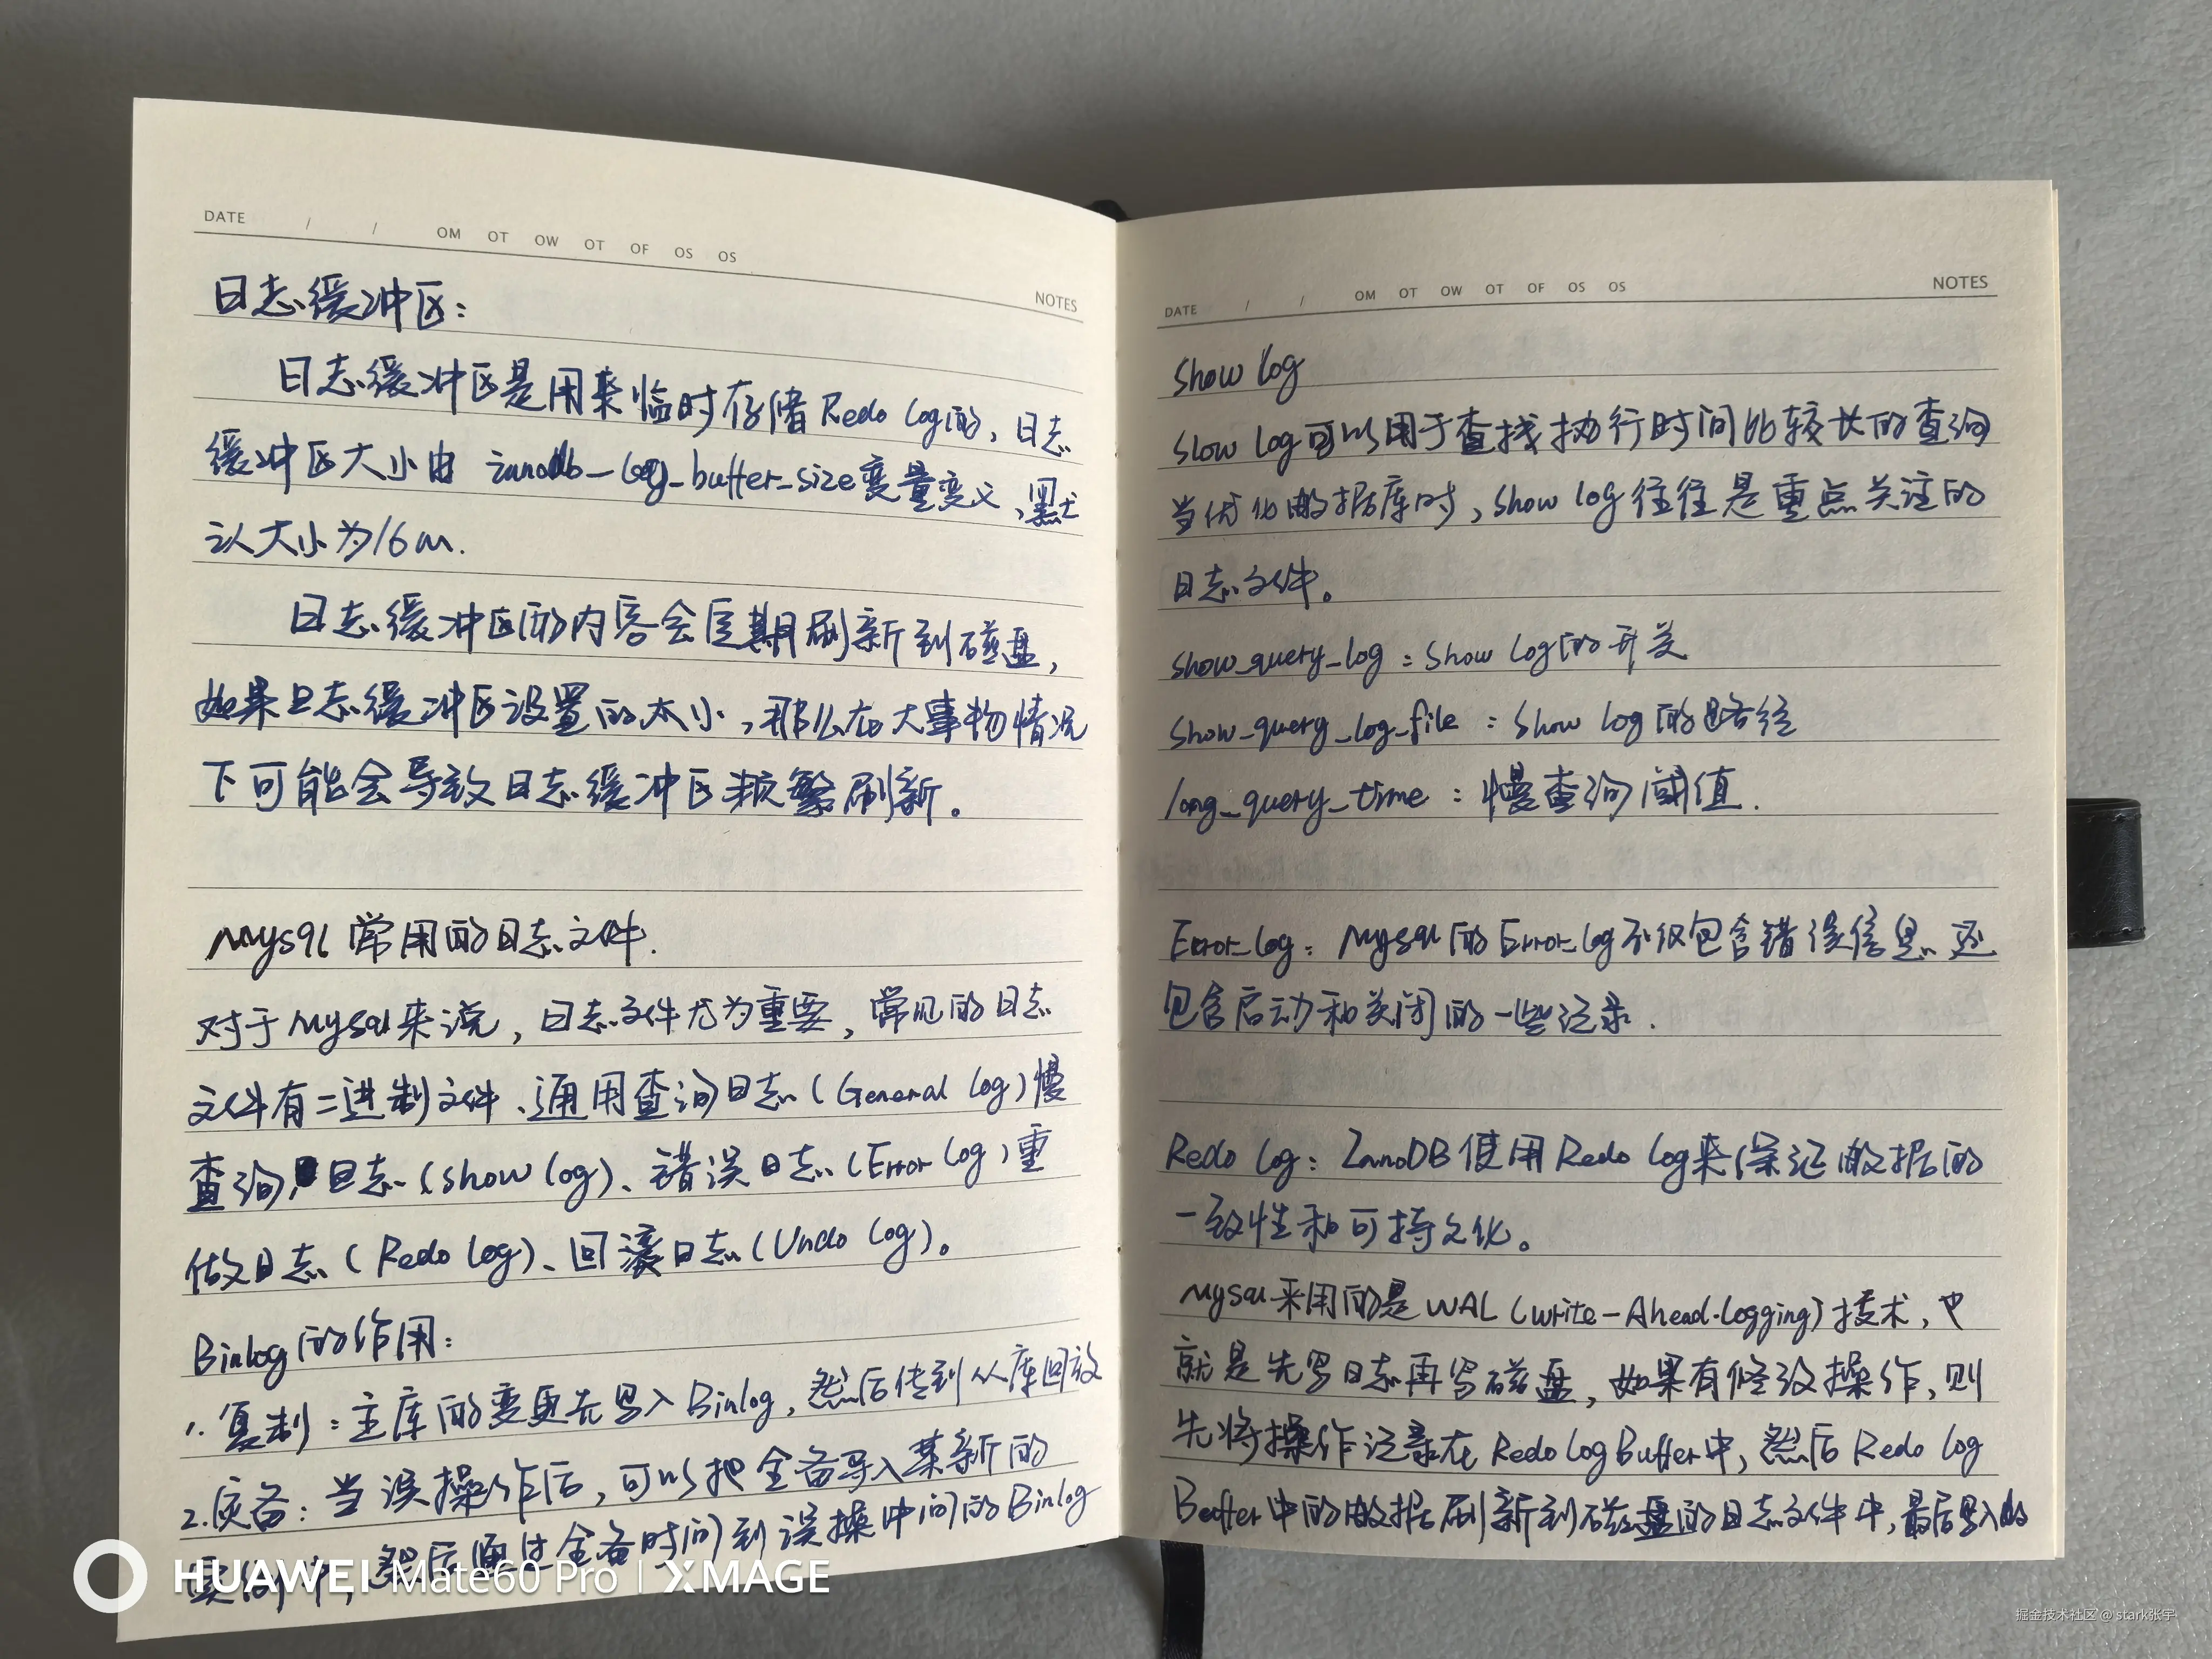 DATE / / OM OT OW OT OF OS OS
NOTES
日志缓冲区：
日志缓冲区是用来临时存储Redo log的，日志
缓冲区大小由 innodb_log_buffer_size变量变义，默
认大小为16m.
日志缓冲区的内容会定期刷新到磁盘，
如果日志缓冲区设置的太小，那么在大事物情况
下可能会导致日志缓冲区频繁刷新。
Mysql 常用的日志文件.
对于Mysql来说，日志文件尤为重要，常见的日志
文件有二进制文件、通用查询日志（General log）慢
查询日志（show log）、错误日志（Error log）重
做日志（Redo log）、回滚日志（Undo log）。
Binlog的作用：
1. 复制：主库的变更先写入Binlog，然后传到从库回放
2. 灾备：当误操作后，可以把全备导入某新的
实例中，然后通过全备时间到误操中间的Binlog
DATE / / OM OT OW OT OF OS OS
NOTES
Show log
Slow log可以用于查找执行时间比较长的查询
当优化数据库时，Show log往往是重点关注的
日志文件。
show_query_log：Show log的开关
Show_query_log_file：Show log的路径
long_query_time：慢查询阈值.
Error_log：Mysql的Error_log不仅包含错误信息，还
包含启动和关闭的一些记录.
Redo log：InnoDB使用Redo log来保证数据的
一致性和可持久化。
Mysql采用的是WAL（write-Ahead-logging）技术，也
就是先写日志再写磁盘，如果有修改操作，则
先将操作记录在Redo log Buffer中，然后Redo log
Buffer中的数据刷新到磁盘的日志文件中，最后写入的
HUAWEI Mate60 Pro | XMAGE
掘金技术社区 @ stark张宇